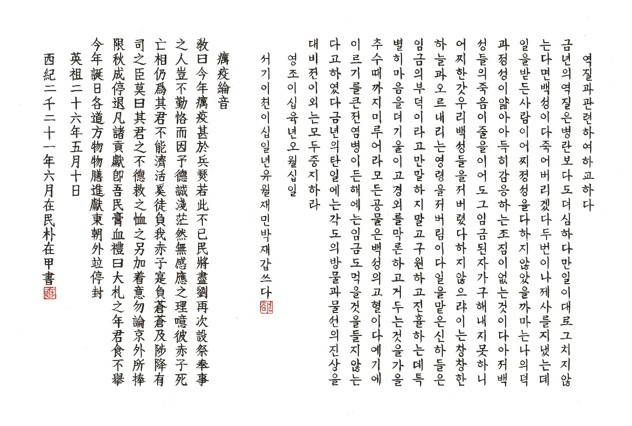 역질과관련하여하교하다
금년의역질은병란보다도더심하다만일이대로그치지않
는다면백성이다죽어버리겠다두번이나제사를지냈는데
일을받든사람이어찌정성을다하지않았을까마는나의덕
과정성이얇아아득히감응하는조짐이없는것이다아저백
성들의죽음이줄을이어도그임금된자가구해내지못하니
어찌한갓우리백성들을저버렸다하지않으랴이는창창한
하늘과오르내리는영령을저버림이다일을맡은신하들은
임금의부덕이라고만말하지말고구원하고진휼하는데특
별히마음을더기울이고경외를막론하고거두는것을가을
추수때까지미루어라모든공물은백성의고혈이다예기에
이르기를큰전염병이든해에는임금도먹을것을들지않는
다고하였다금년의탄일에는각도의방물과물선의진상을
대비전이외는모두중지하라
영조이십육년오월십일
서기이천이십일년유월재민박재갑쓰다
癘疫綸音
敎曰今年癘疫甚於兵燹若此不已民將盡劉再次設祭奉事
之人豈不勤恪而因予德誠淺茫然無感應之理噫彼赤子死
亡相仍爲其君不能濟活奚徒負我赤子寔負蒼蒼及陟降有
司之臣莫曰其君之不德救之恤之另加着意勿論京外所捧
限秋成停退凡諸貢獻卽吾民膏血禮曰大札之年君食不擧
今年誕日各道方物物膳進獻東朝外竝停封
英祖二十六年五月十日
西紀二千二十一年六月在民朴在甲書